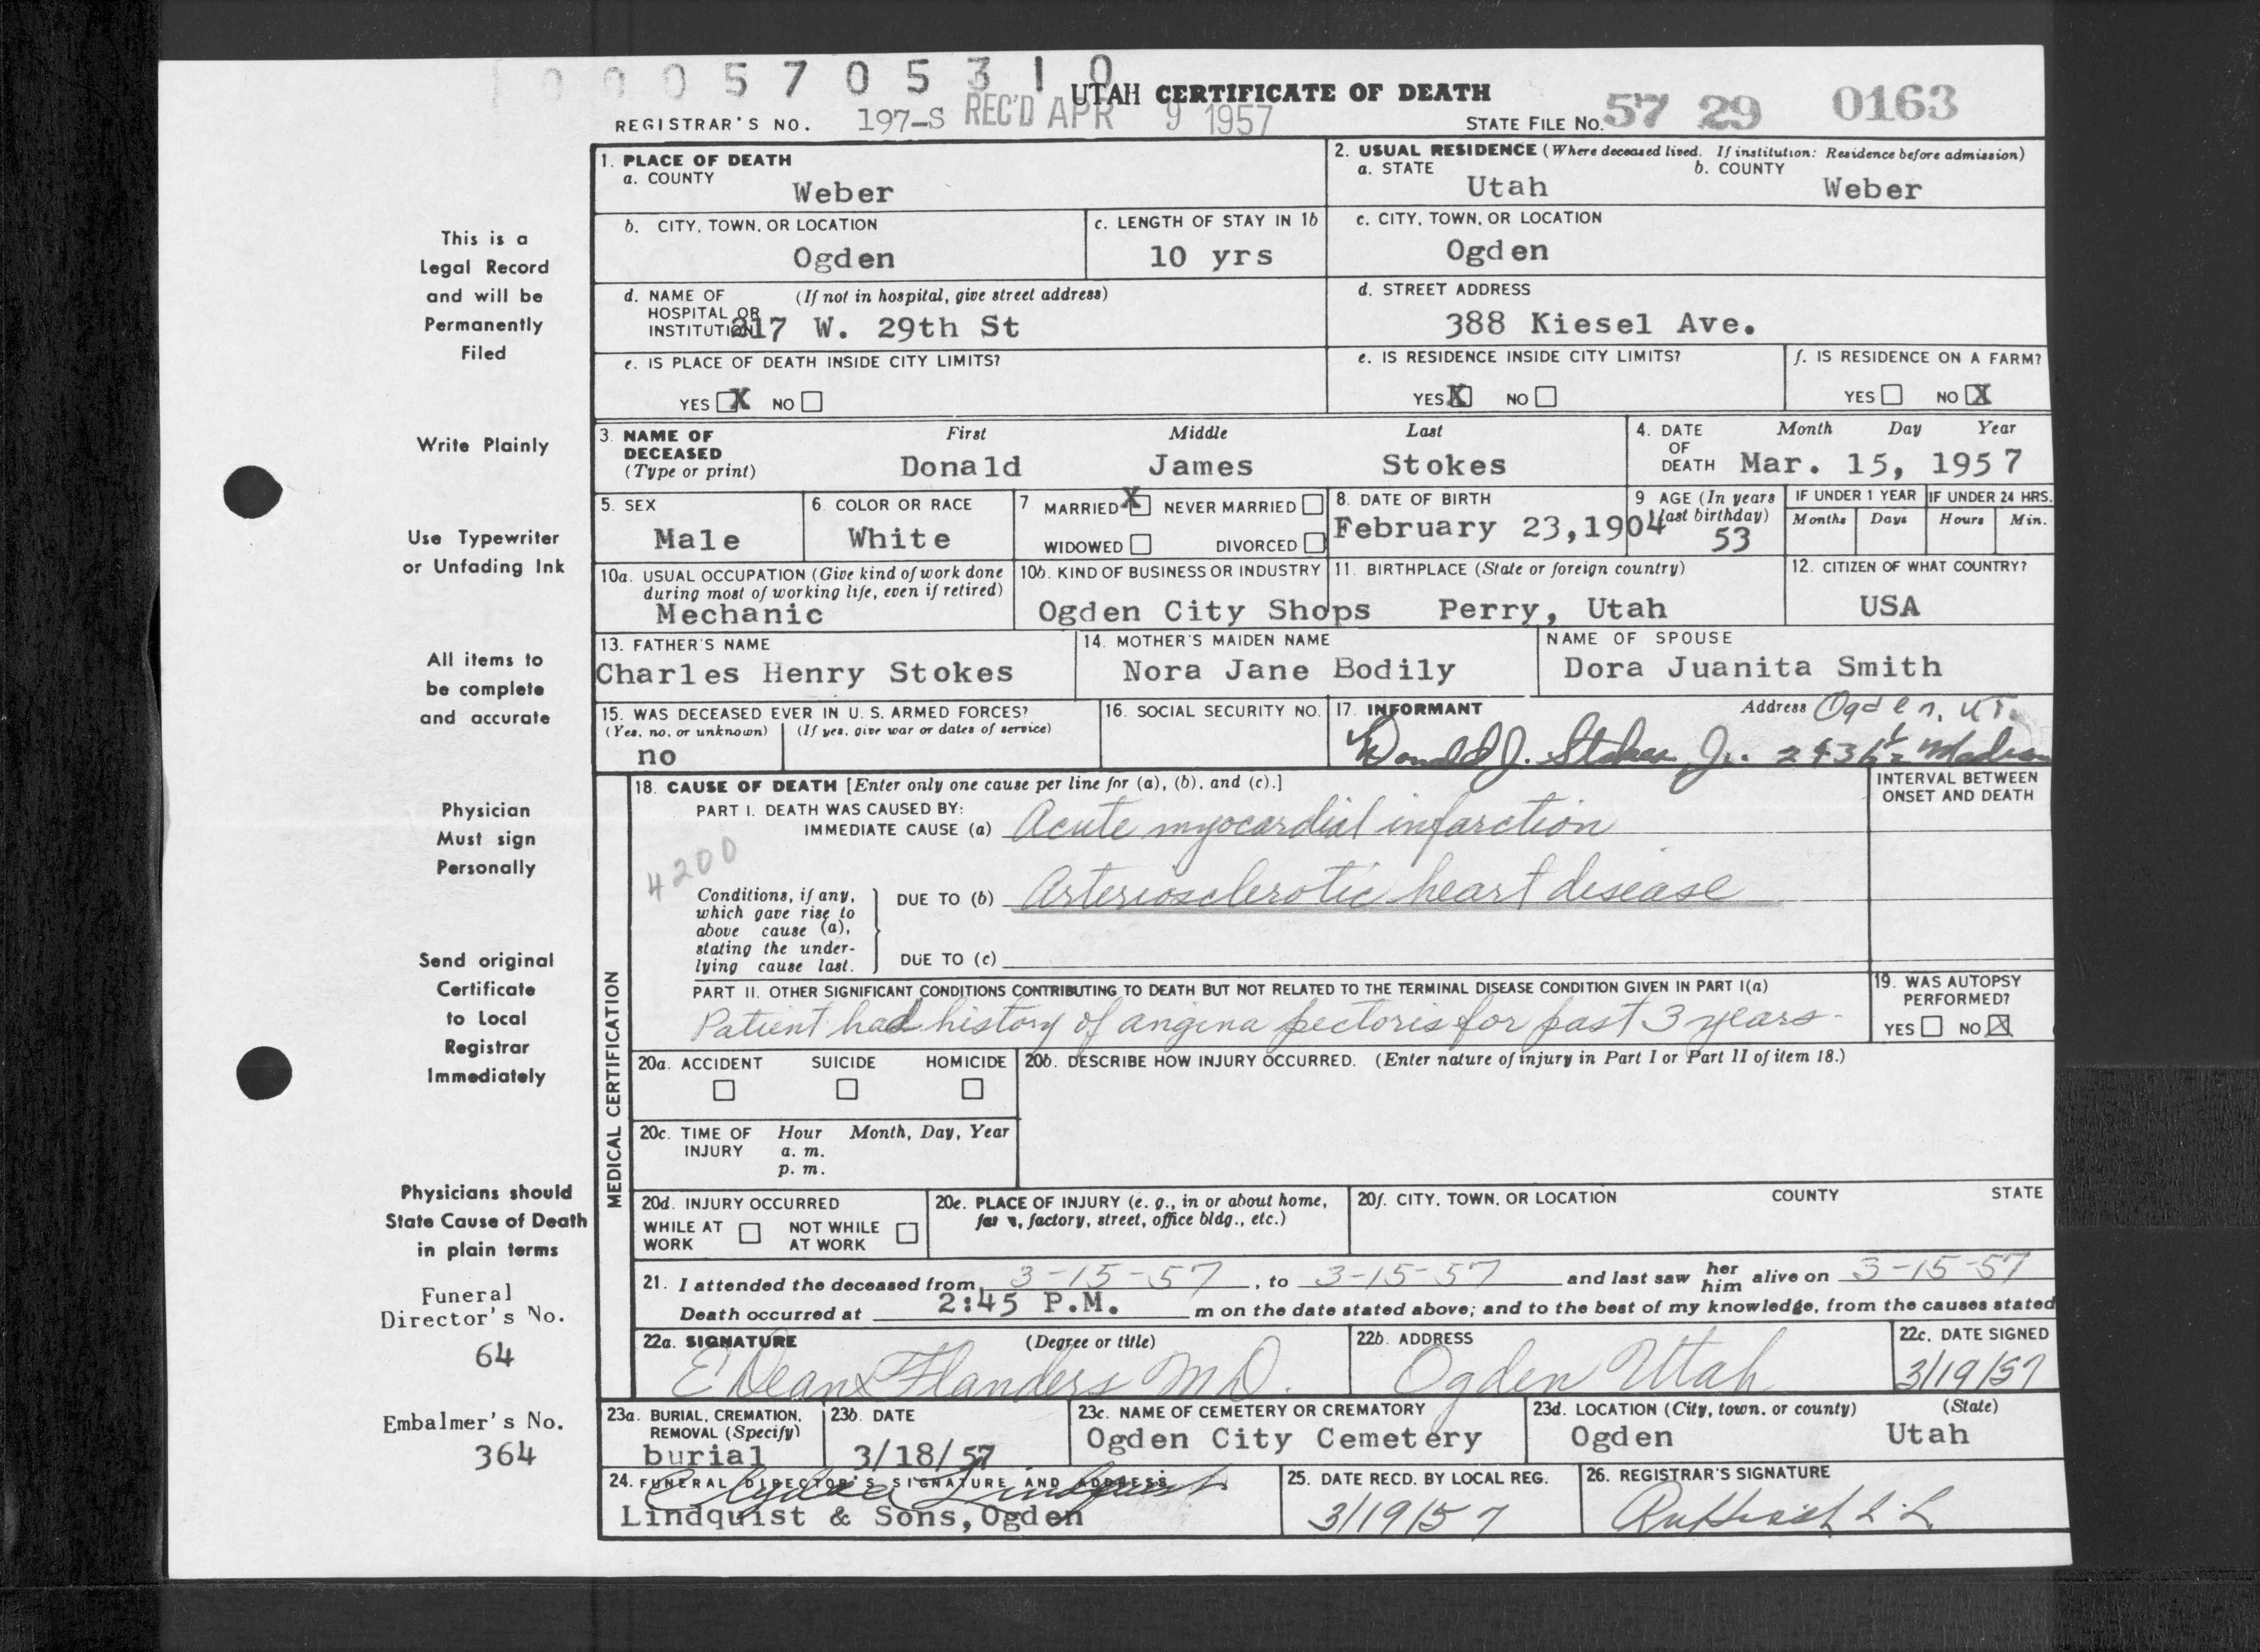 0 0 0 5 7 0 5 3 1 0
UTAH CERTIFICATE OF DEATH
REGISTRAR'S NO. 197-S REC'D APR 9 1957 STATE FILE NO. 57 29 0163
1. PLACE OF DEATH
a. COUNTY
Weber
2. USUAL RESIDENCE (Where deceased lived. If institution: Residence before admission)
a. STATE b. COUNTY
Utah Weber
b. CITY, TOWN, OR LOCATION
Ogden
c. LENGTH OF STAY IN 1b
10 yrs
c. CITY, TOWN, OR LOCATION
Ogden
d. NAME OF (If not in hospital, give street address)
HOSPITAL OR
INSTITUTION 217 W. 29th St
d. STREET ADDRESS
388 Kiesel Ave.
e. IS PLACE OF DEATH INSIDE CITY LIMITS?
YES X NO
e. IS RESIDENCE INSIDE CITY LIMITS?
YES X NO
f. IS RESIDENCE ON A FARM?
YES NO X
3. NAME OF DECEASED
(Type or print)
First Middle Last
Donald James Stokes
4. DATE OF DEATH
Month Day Year
Mar. 15, 1957
5. SEX
Male
6. COLOR OR RACE
White
7 MARRIED X NEVER MARRIED
WIDOWED DIVORCED
8. DATE OF BIRTH
February 23,1904
9 AGE (In years
last birthday)
53
IF UNDER 1 YEAR
Months Days
IF UNDER 24 HRS.
Hours Min.
10a. USUAL OCCUPATION (Give kind of work done
during most of working life, even if retired)
Mechanic
10b. KIND OF BUSINESS OR INDUSTRY
Ogden City Shops
11. BIRTHPLACE (State or foreign country)
Perry, Utah
12. CITIZEN OF WHAT COUNTRY?
USA
13. FATHER'S NAME
Charles Henry Stokes
14. MOTHER'S MAIDEN NAME
Nora Jane Bodily
NAME OF SPOUSE
Dora Juanita Smith
15. WAS DECEASED EVER IN U. S. ARMED FORCES?
(Yes, no, or unknown) (If yes, give war or dates of service)
no
16. SOCIAL SECURITY NO.
17. INFORMANT Address Ogden, UT.
Donald J. Stokes Jr. 2436 1/2 Madison
MEDICAL CERTIFICATION
18. CAUSE OF DEATH [Enter only one cause per line for (a), (b), and (c).]
INTERVAL BETWEEN
ONSET AND DEATH
PART I. DEATH WAS CAUSED BY:
IMMEDIATE CAUSE (a) Acute myocardial infarction
4200
Conditions, if any,
which gave rise to
above cause (a),
stating the under-
lying cause last.
DUE TO (b) Arteriosclerotic heart disease
DUE TO (c)
PART II. OTHER SIGNIFICANT CONDITIONS CONTRIBUTING TO DEATH BUT NOT RELATED TO THE TERMINAL DISEASE CONDITION GIVEN IN PART I(a)
Patient had history of angina pectoris for past 3 years.
19. WAS AUTOPSY
PERFORMED?
YES NO X
20a. ACCIDENT SUICIDE HOMICIDE
20b. DESCRIBE HOW INJURY OCCURRED. (Enter nature of injury in Part I or Part II of item 18.)
20c. TIME OF INJURY
Hour Month, Day, Year
a. m.
p. m.
20d. INJURY OCCURRED
WHILE AT WORK NOT WHILE AT WORK
20e. PLACE OF INJURY (e. g., in or about home,
farm, factory, street, office bldg., etc.)
20f. CITY, TOWN, OR LOCATION COUNTY STATE
21. I attended the deceased from 3-15-57, to 3-15-57 and last saw her him alive on 3-15-57
Death occurred at 2:45 P.M. m on the date stated above; and to the best of my knowledge, from the causes stated
22a. SIGNATURE (Degree or title)
E Dean Flanders MD.
22b. ADDRESS
Ogden Utah
22c. DATE SIGNED
3/19/57
23a. BURIAL, CREMATION,
REMOVAL (Specify)
burial
23b. DATE
3/18/57
23c. NAME OF CEMETERY OR CREMATORY
Ogden City Cemetery
23d. LOCATION (City, town, or county) (State)
Ogden Utah
24. FUNERAL DIRECTOR'S SIGNATURE AND ADDRESS
Lindquist
Lindquist & Sons, Ogden
25. DATE RECD. BY LOCAL REG.
3/19/57
26. REGISTRAR'S SIGNATURE
This is a
Legal Record
and will be
Permanently
Filed
Write Plainly
Use Typewriter
or Unfading Ink
All items to
be complete
and accurate
Physician
Must sign
Personally
Send original
Certificate
to Local
Registrar
Immediately
Physicians should
State Cause of Death
in plain terms
Funeral
Director's No.
64
Embalmer's No.
364